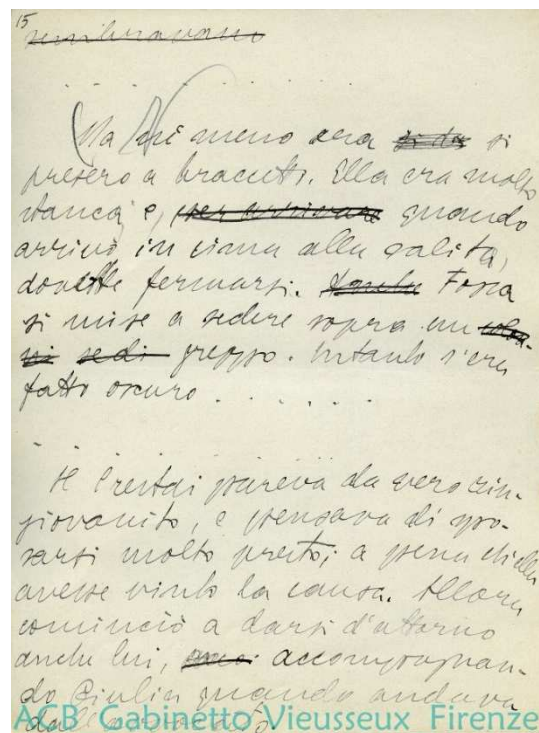 15
sembravano
. . . . . . .
Ma nè meno era si da si
presero a braccetto. Ella era molto
stanca e, quando
arrivò in cima alla salita,
dovette fermarsi. Anche Fosca
si mise a sedere sopra un
sedi greppo. Intanto s'era
fatto oscuro . . . . . .
Il Crestai pareva da vero rin-
giovanito, e pensava di spo-
sarsi molto presto; a pena ch'ella
avesse vinto la causa. Allora
cominciò a darsi d'attorno
anche lui, accompagnan-
do Giulia quando andava
dall'avvocato.
ACB Gabinetto Vieusseux Firenze